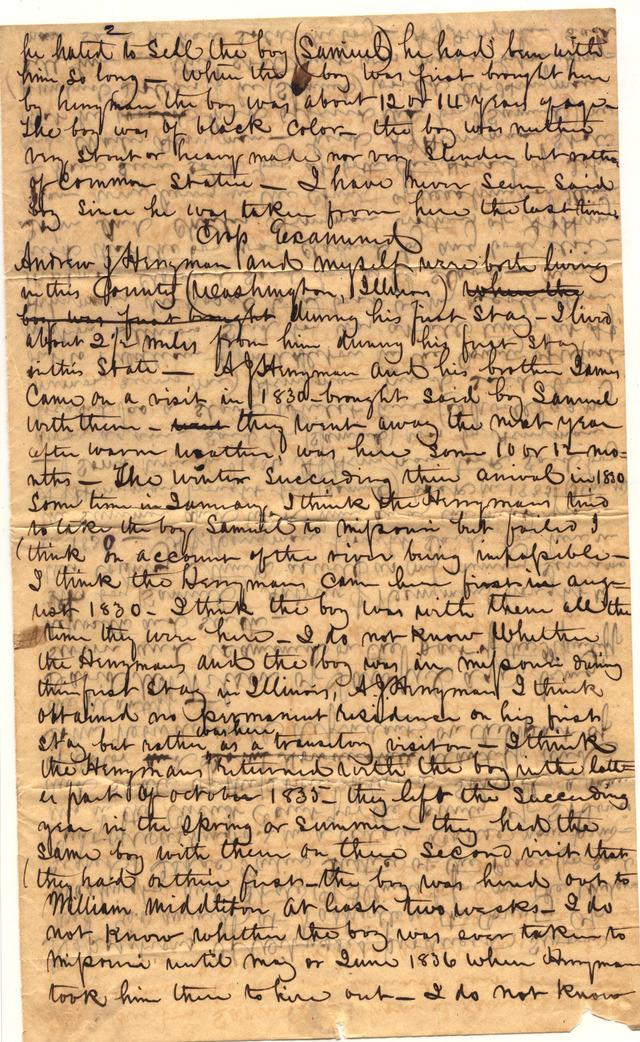 2
he hated to sell the boy (Samuel) he had been with
him so long – When the boy was first brought here
by henryman the boy was about 12 or 14 years of age –
The boy was of black color – the boy was neither
very stout or heavy made nor very slender but rather
of common statue – I have never seen said
boy since he was taken from here the last time
Crop Examined
Andrew J Henryman and myself were both living
in this County (Washington, Illinois) when the
boy was first brought during his first stay – I lived
about 2 1/2 miles from him during his first stay
in this State – A J Henryman and his brother James
came on a visit in 1830 – brought said boy Samuel
with them – they went away the next year
after warm weather, was here some 10 or 12 mo-
nths – The winter succeeding their arrival in 1830
some time in January, I think the Henrymans tried
to take the boy Samuel to missouri but failed I
(think on account of the river being impassible –
I think the Henrymans came here first in aug-
ust 1830 – I think the boy was with them all the
time they were here – I do not know whether
the Henrymans and the boy was in missouri during
their first stay in Illinois, A J Henryman I think
obtained no permanent residence on his first
was here
stay but rather as a transitory visitor – I think
the Henrymans returned with the boy in the latt-
er part of october 1835 – they left the succeeding
year in the spring or summer – they had the
same boy with them on their second visit that
(they had on their first – the boy was hired out to
William Middleton at least two weeks – I do
not know whether the boy was ever taken to
missouri until may or June 1836 when Henryman
took him there to hire out – I do not know